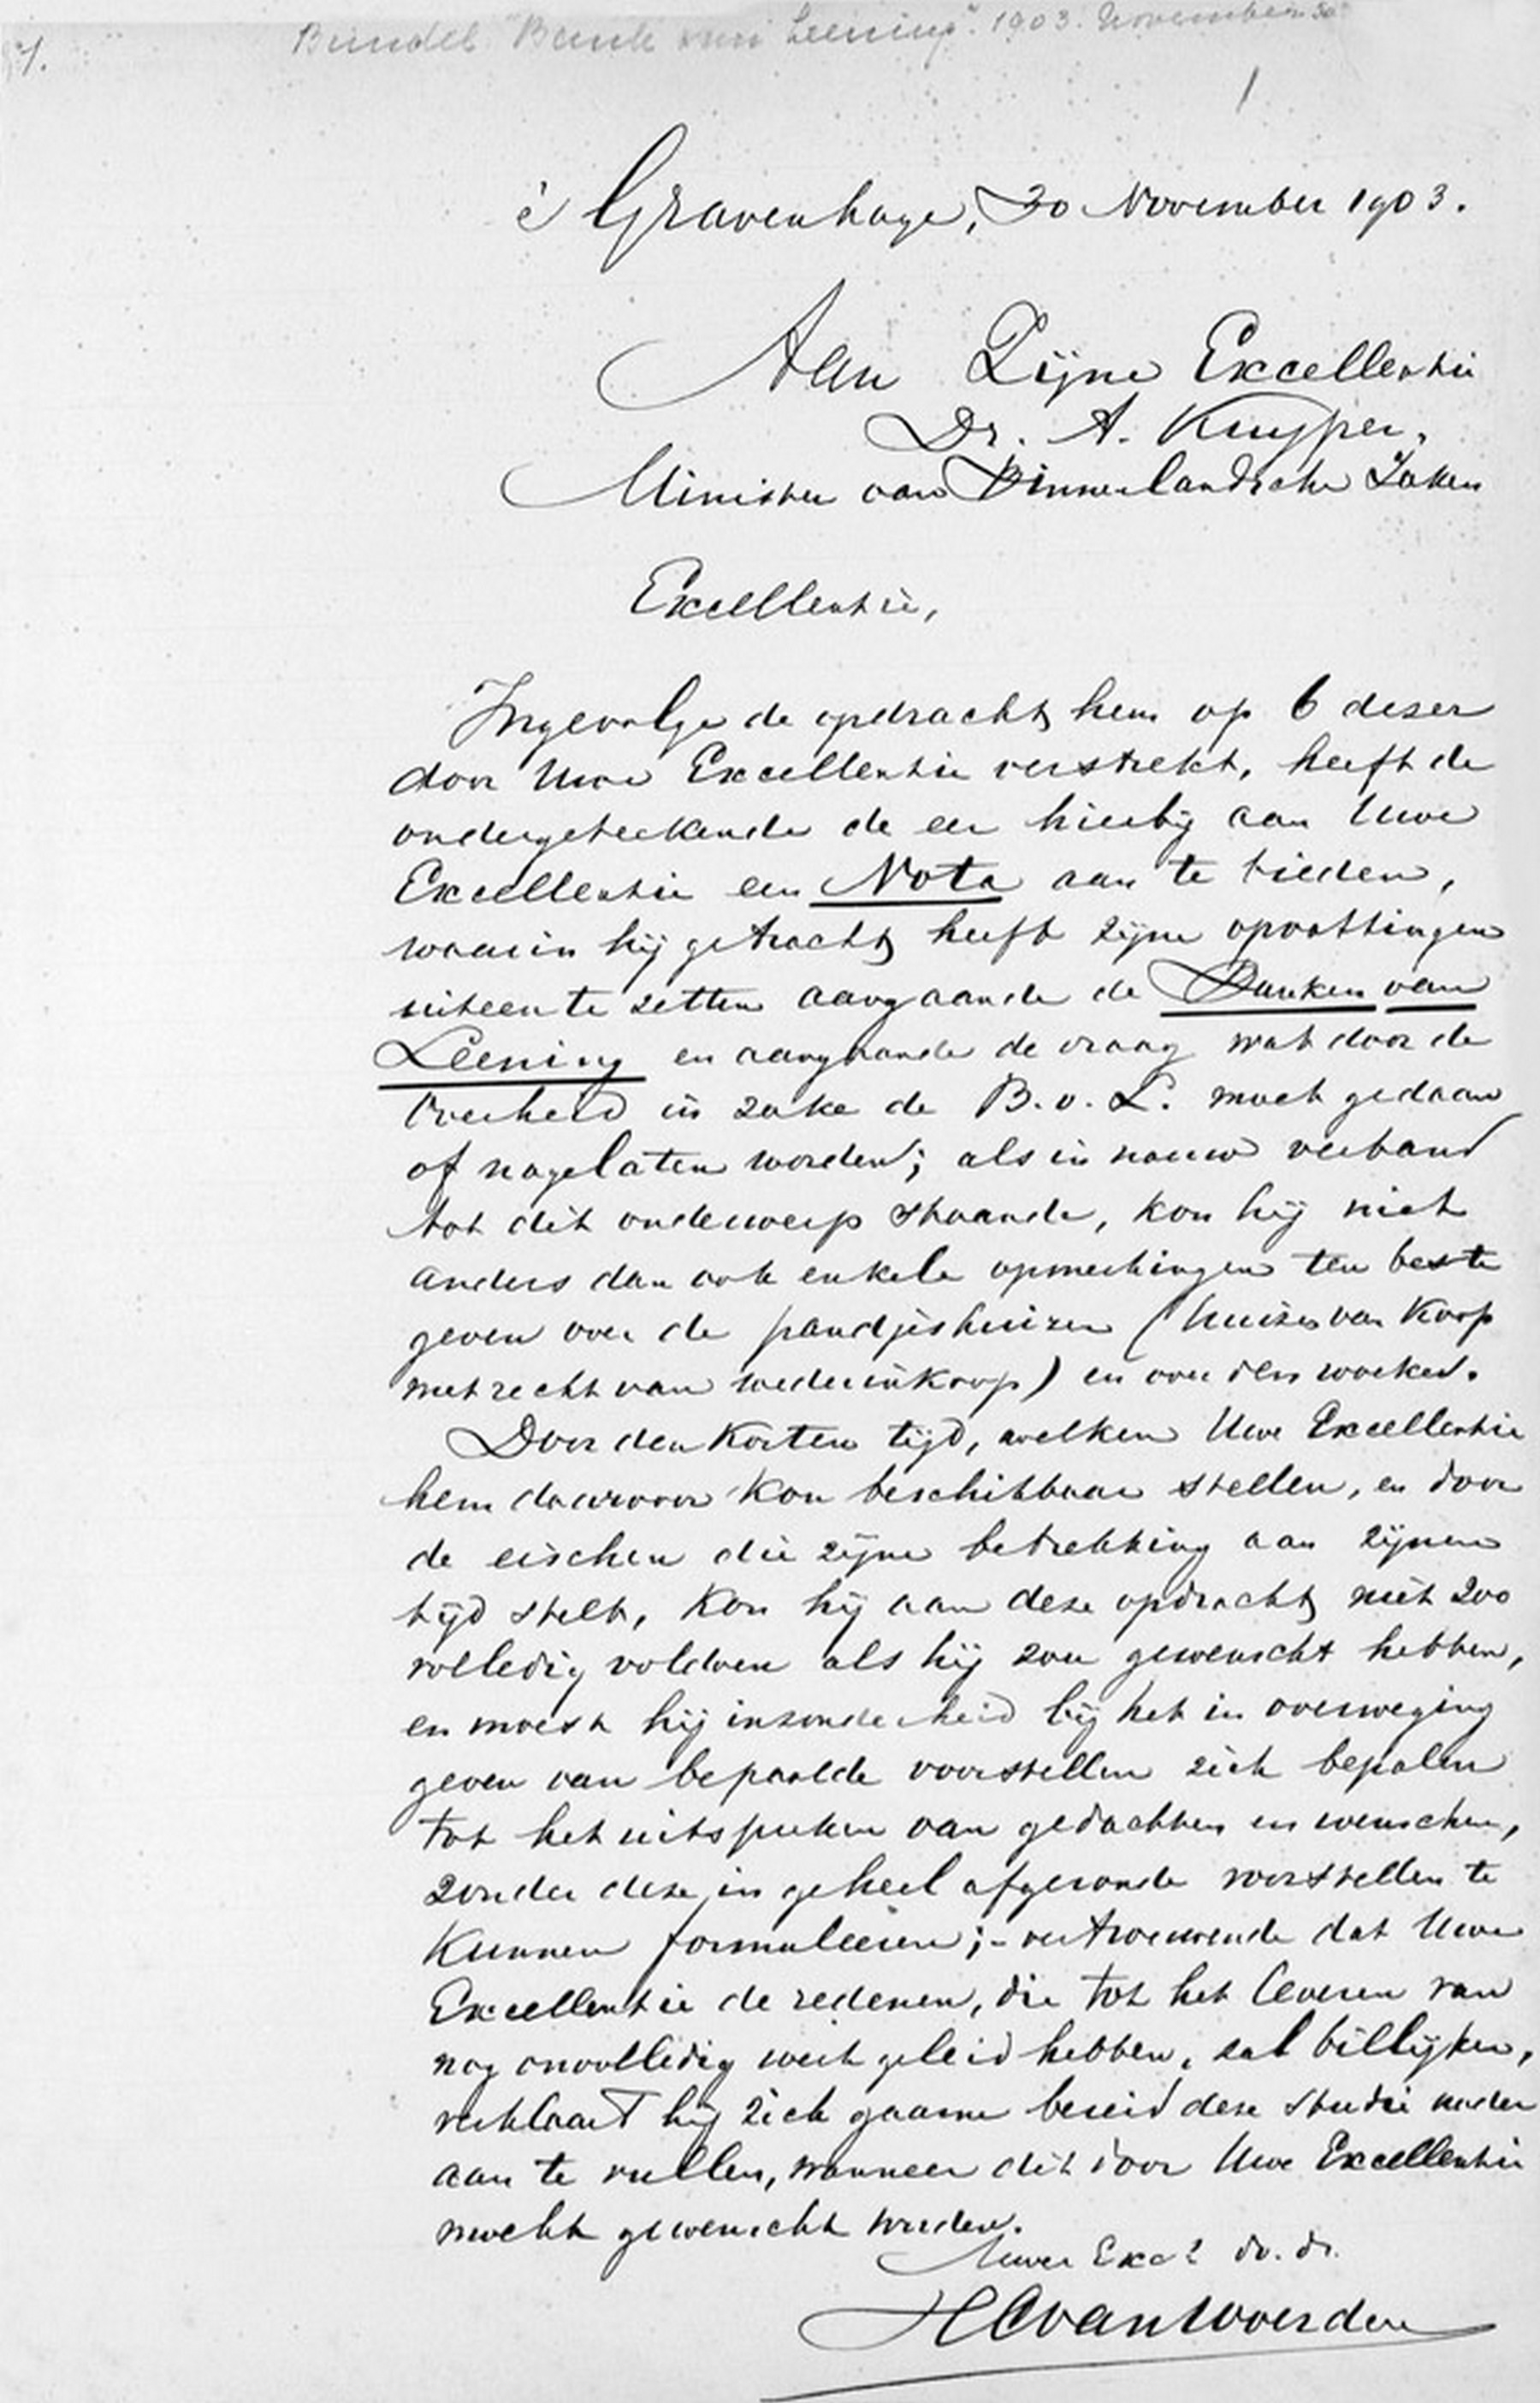 Bundel "Bank van Leening". 1903. November 30
1.
1
's Gravenhage, 30 November 1903.
Aan Zijne Excellentie
Dr. A. Kuyper,
Minister van Binnenlandsche Zaken
Excellentie,
Ingevolge de opdracht hem op 6 dezer
door Uwe Excellentie verstrekt, heeft de
ondergeteekende de eer hierbij aan Uwe
Excellentie een Nota aan te bieden,
waarin hij getracht heeft zijne opvattingen
uiteen te zetten aangaande de Banken van
Leening en aangaande de vraag wat door de
Overheid in zake de B.v.L. moet gedaan
of nagelaten worden; als in nauw verband
tot dit onderwerp staande, kon hij niet
anders dan ook enkele opmerkingen ten beste
geven over de pandjeshuizen (huizen van Koop
met recht van wederinkoop) en over den woeker.
Door den Korten tijd, welken Uwe Excellentie
hem daarvoor kon beschikbaar stellen, en door
de eischen die zijne betrekking aan zijnen
tijd stelt, kon hij aan deze opdracht niet zoo
volledig voldoen als hij zou gewenscht hebben,
en moest hij inzonderheid bij het in overweging
geven van bepaalde voorstellen zich bepalen
tot het uitspreken van gedachten en wenschen,
zonder deze in geheel afgeronde voorstellen te
Kunnen formuleeren;- vertrouwende dat Uwe
Excellentie de redenen, die tot het leveren van
nog onvolledig werk geleid hebben, zal billijken,
verklaart hij zich gaarne bereid deze studie nader
aan te vullen, wanneer dit door Uwe Excellentie
mocht gewenscht worden.
Uwer Exc. dv. dr.
HCvanWoerden